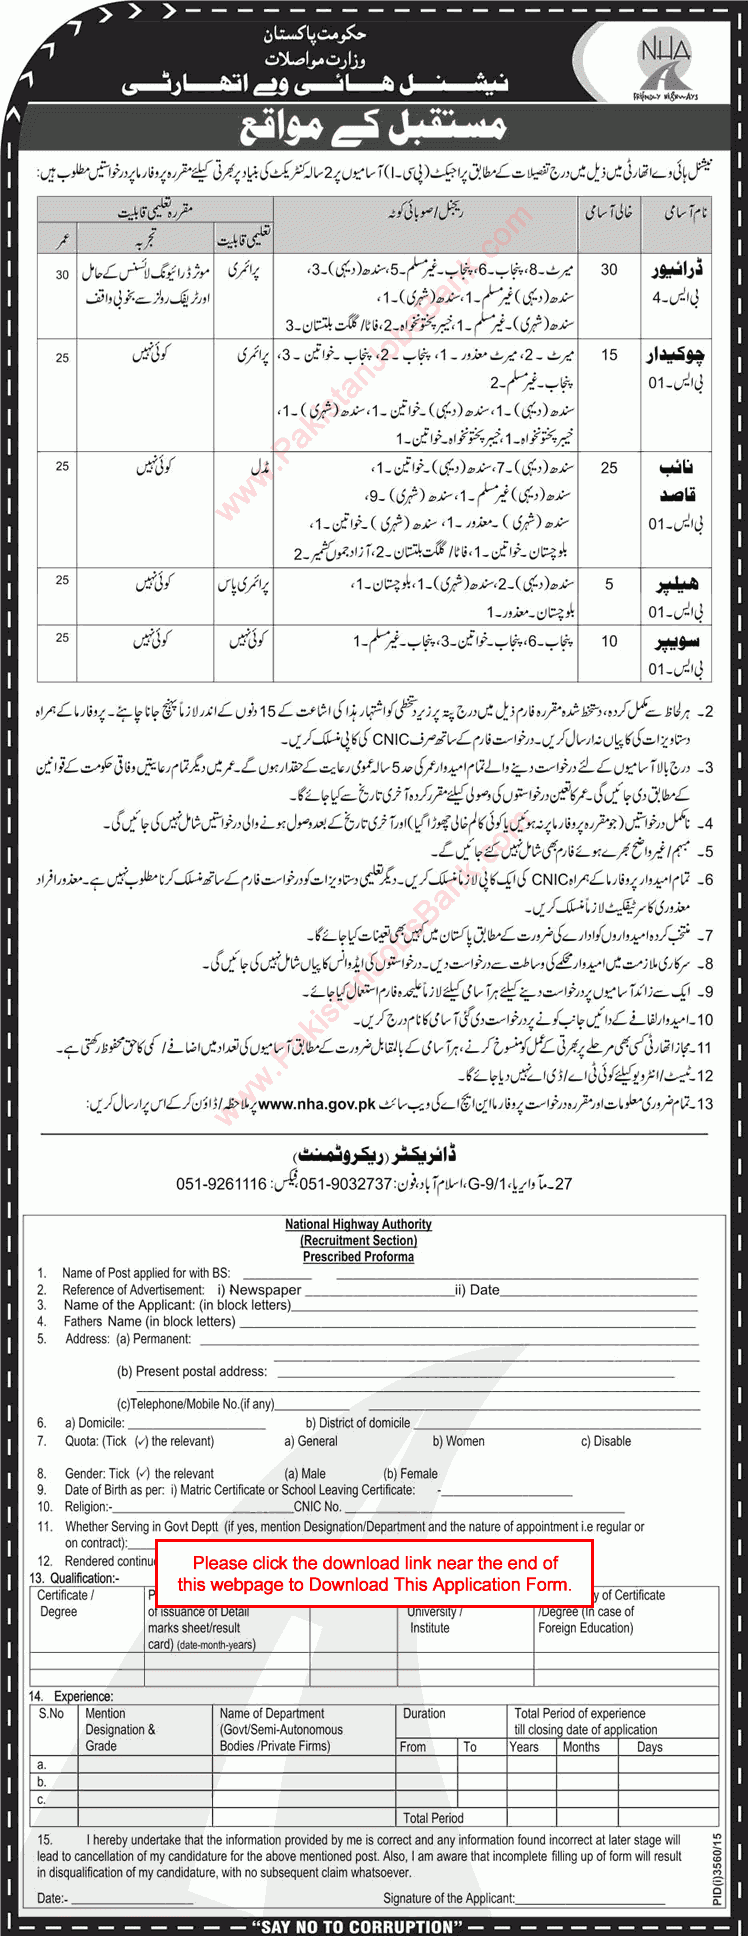 حکومت پاکستان
وزارت مواصلات
نیشنل ہائی وے اتھارٹی
NHA
FRIENDLY HIGHWAYS
مستقبل کے مواقع
نیشنل ہائی وے اتھارٹی میں ذیل میں درج تفصیلات کے مطابق پراجیکٹ (پی سی-I) آسامیوں پر 2 سالہ کنٹریکٹ کی بنیاد پر بھرتی کیلئے مقررہ پروفارما پر درخواستیں مطلوب ہیں:
نام آسامی خالی آسامی ریجنل/صوبائی کوٹہ مقررہ تعلیمی قابلیت
تعلیمی قابلیت تجربہ عمر
ڈرائیور 30 میرٹ-8، پنجاب-6، پنجاب-غیر مسلم-5، سندھ (دیہی)-3، پرائمری موثر ڈرائیونگ لائسنس کے حامل 30
بی ایس-4 سندھ (دیہی) غیر مسلم-1، سندھ (شہری)-1، اور ٹریفک رولز سے بخوبی واقف
سندھ (شہری)-غیر مسلم-1، خیبر پختونخواہ-2، فاٹا/گلگت بلتستان-3
چوکیدار 15 میرٹ-2، میرٹ معذور-1، پنجاب-2، پنجاب-خواتین-3، پرائمری کوئی نہیں 25
بی ایس-01 پنجاب-غیر مسلم-2
سندھ (دیہی)-1، سندھ (دیہی)-خواتین-1، سندھ (شہری)-1،
خیبر پختونخواہ-1، خیبر پختونخواہ-خواتین-1
نائب 25 سندھ (دیہی)-7، سندھ (دیہی)-خواتین-1، مڈل کوئی نہیں 25
قاصد سندھ (دیہی) غیر مسلم-1، سندھ (شہری)-9،
بی ایس-01 سندھ (شہری)-معذور-1، سندھ (شہری)-خواتین-1،
بلوچستان-خواتین-1، فاٹا/گلگت بلتستان-2، آزاد جموں کشمیر-2
ھیلپر 5 سندھ (دیہی)-2، سندھ (شہری)-1، بلوچستان-1، پرائمری پاس کوئی نہیں 25
بی ایس-01 بلوچستان-معذور-1
سویپر 10 پنجاب-6، پنجاب-خواتین-3، پنجاب-غیر مسلم-1 کوئی نہیں کوئی نہیں 25
بی ایس-01
2- ہر لحاظ سے مکمل کردہ، دستخط شدہ مقررہ فارم ذیل میں درج پتہ پر زیر دستخطی کو اشتہار ہذا کی اشاعت کے 15 دنوں کے اندر لازماً پہنچ جانا چاہئے۔ پروفارما کے ہمراہ
دستاویزات کی کاپیاں نہ ارسال کریں۔ درخواست فارم کے ساتھ صرف CNIC کی کاپی منسلک کریں۔
3- درج بالا آسامیوں کے لئے درخواست دینے والے تمام امیدوار عمر کی حد 5 سالہ عمومی رعایت کے حقدار ہوں گے۔ عمر میں دیگر تمام رعایتیں وفاقی حکومت کے قوانین
کے مطابق دی جائیں گی۔ عمر کا تعین درخواستوں کی وصولی کیلئے مقرر کردہ آخری تاریخ سے کیا جائے گا۔
4- نامکمل درخواستیں (جو مقررہ پروفارما پر نہ ہوئیں یا کوئی کالم خالی چھوڑا گیا) اور آخری تاریخ کے بعد وصول ہونے والی درخواستیں شامل نہیں کی جائیں گی۔
5- مبہم/غیر واضح بھرے ہوئے فارم بھی شامل نہیں کئے جائیں گے۔
6- تمام امیدوار پروفارما کے ہمراہ CNIC کی ایک کاپی لازماً منسلک کریں۔ دیگر تعلیمی دستاویزات کو درخواست فارم کے ساتھ منسلک کرنا مطلوب نہیں ہے۔ معذور افراد
معذوری کا سرٹیفکیٹ لازماً منسلک کریں۔
7- منتخب کردہ امیدواروں کو ادارے کی ضرورت کے مطابق پاکستان میں کہیں بھی تعینات کیا جائے گا۔
8- سرکاری ملازمت میں امیدوار محکمے کی وساطت سے درخواست دیں۔ درخواستوں کی ایڈوانس کاپیاں شامل نہیں کی جائیں گی۔
9- ایک سے زائد آسامیوں پر درخواست دینے کیلئے ہر آسامی کیلئے لازماً علیحدہ فارم استعمال کیا جائے۔
10- امیدوار لفافے کے دائیں جانب کونے پر درخواست دی گئی آسامی کا نام درج کریں۔
11- مجاز اتھارٹی کسی بھی مرحلے پر بھرتی کے عمل کو منسوخ کرنے، ہر آسامی کے بالمقابل ضرورت کے مطابق آسامیوں کی تعداد میں اضافے/کمی کا حق محفوظ رکھتی ہے۔
12- ٹیسٹ/انٹرویو کیلئے کوئی ٹی اے/ڈی اے نہیں دیا جائے گا۔
13- تمام ضروری معلومات اور مقررہ درخواست پروفارما این ایچ اے کی ویب سائٹ www.nha.gov.pk پر ملاحظہ/ڈاؤن کر کے اس پر ارسال کریں:
ڈائریکٹر (ریکروٹمنٹ)
27-ماؤ ایریا، G-9/1، اسلام آباد، فون: 051-9032737، فیکس: 051-9261116
www.PakistanJobsBank.com
www.PakistanJobsBank.com
National Highway Authority
(Recruitment Section)
Prescribed Proforma
1. Name of Post applied for with BS:
2. Reference of Advertisement: i) Newspaper ii) Date
3. Name of the Applicant: (in block letters)
4. Fathers Name (in block letters)
5. Address: (a) Permanent:
(b) Present postal address:
(c)Telephone/Mobile No.(if any)
6. a) Domicile: b) District of domicile
7. Quota: (Tick (✓) the relevant) a) General b) Women c) Disable
8. Gender: Tick (✓) the relevant (a) Male (b) Female
9. Date of Birth as per: i) Matric Certificate or School Leaving Certificate: -
10. Religion:- CNIC No.
11. Whether Serving in Govt Deptt (if yes, mention Designation/Department and the nature of appointment i.e regular or
on contract):
12. Rendered continu
Please click the download link near the end of
this webpage to Download This Application Form.
13. Qualification:-
Certificate / Degree
of issuance of Detail marks sheet/result card) (date-month-years)
University / Institute
y of Certificate /Degree (In case of Foreign Education)
14. Experience:
S.No Mention Designation & Grade Name of Department (Govt/Semi-Autonomous Bodies /Private Firms) Duration Total Period of experience till closing date of application
From To Years Months Days
a.
b.
c.
Total Period
15. I hereby undertake that the information provided by me is correct and any information found incorrect at later stage will
lead to cancellation of my candidature for the above mentioned post. Also, I am aware that incomplete filling up of form will result
in disqualification of my candidature, with no subsequent claim whatsoever.
Date:- Signature of the Applicant:
PID(i)3560/15
"SAY NO TO CORRUPTION"